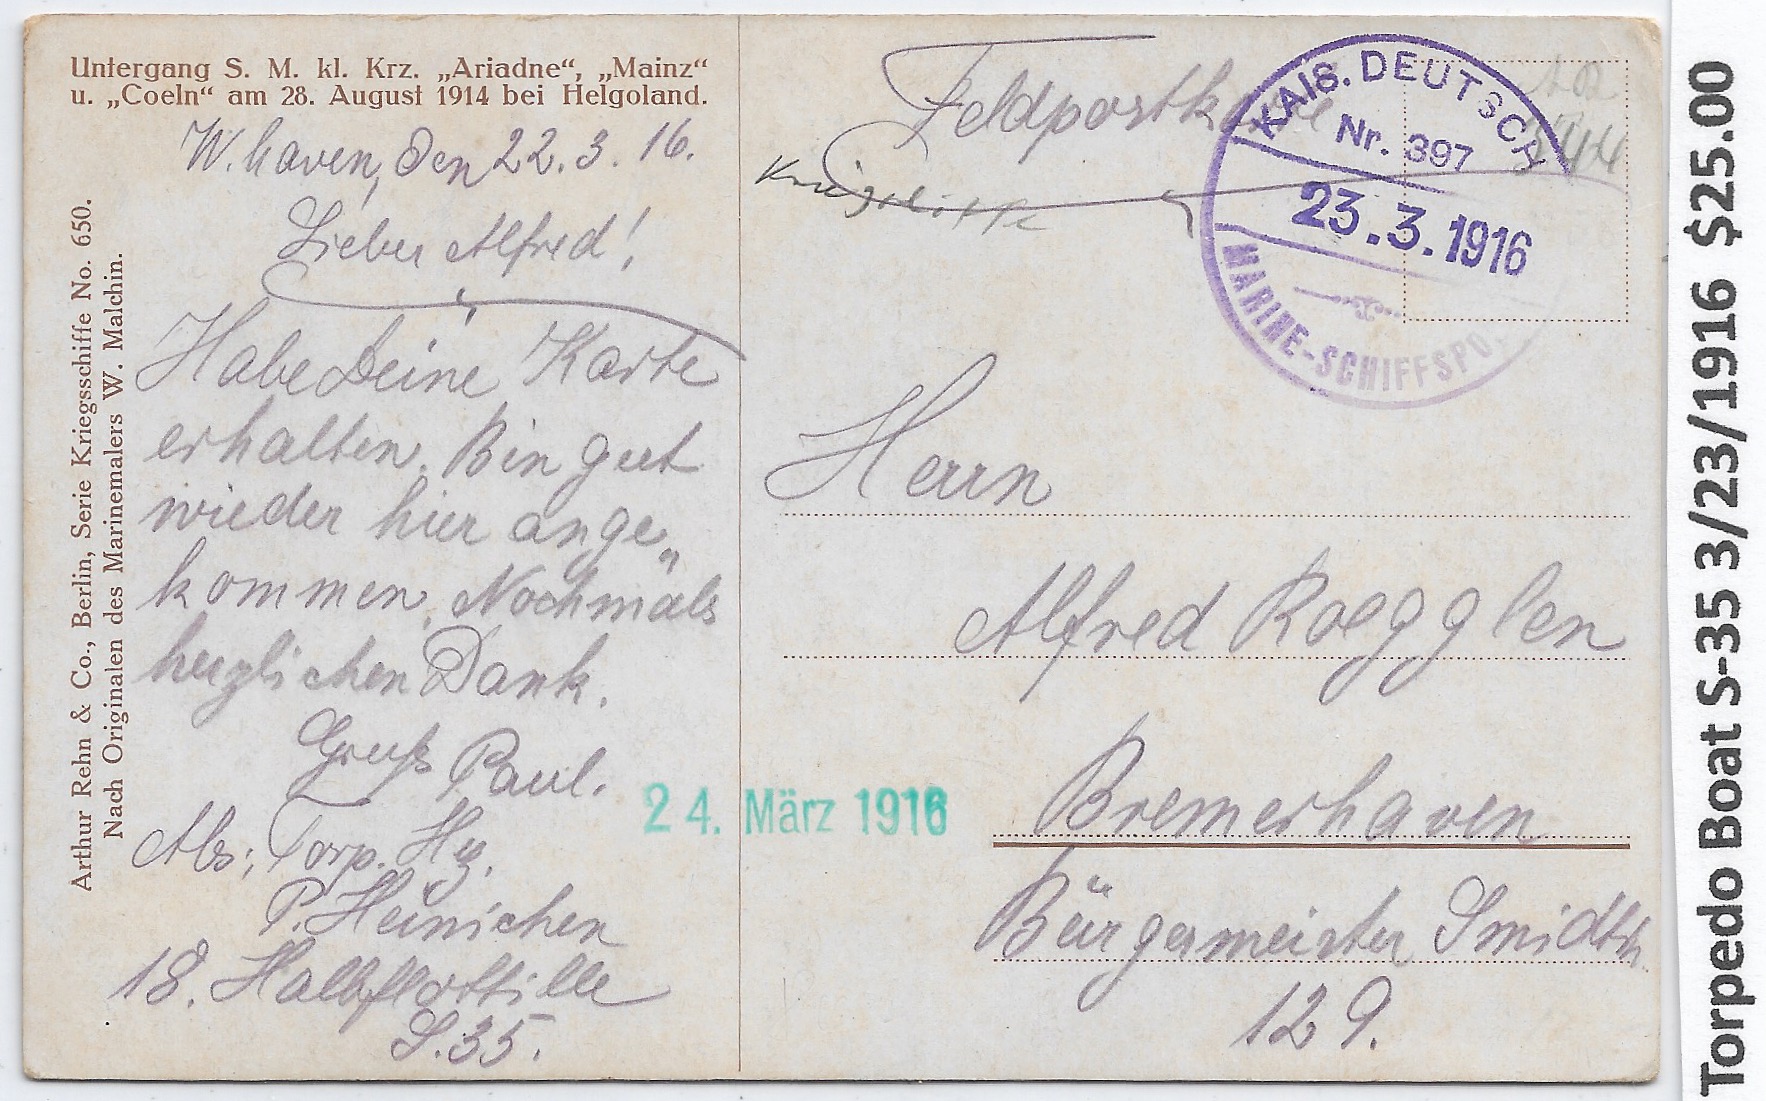 Untergang S. M. kl. Krz. „Ariadne“, „Mainz“
u. „Coeln“ am 28. August 1914 bei Helgoland.
W.haven, den 22.3.16.
Lieber Alfred!
Habe Deine Karte
erhalten. Bin gut
wieder hier ange„
kommen. Nochmals
herzlichen Dank.
Gruß Paul.
Abs: Torp. Hz.
P. Heinichen
18. Halbflottille
S.35.
Arthur Rehn & Co., Berlin, Serie Kriegsschiffe No. 650.
Nach Originalen des Marinemalers W. Malchin.
Feldpostkarte
KAIS. DEUTSCH
Nr. 397
23.3.1916
MARINE-SCHIFFSPO
Herrn
Alfred Roegglen
Bremerhaven
Bürgermeister Smidtstr.
129.
24. März 1916
Torpedo Boat S-35 3/23/1916 $25.00